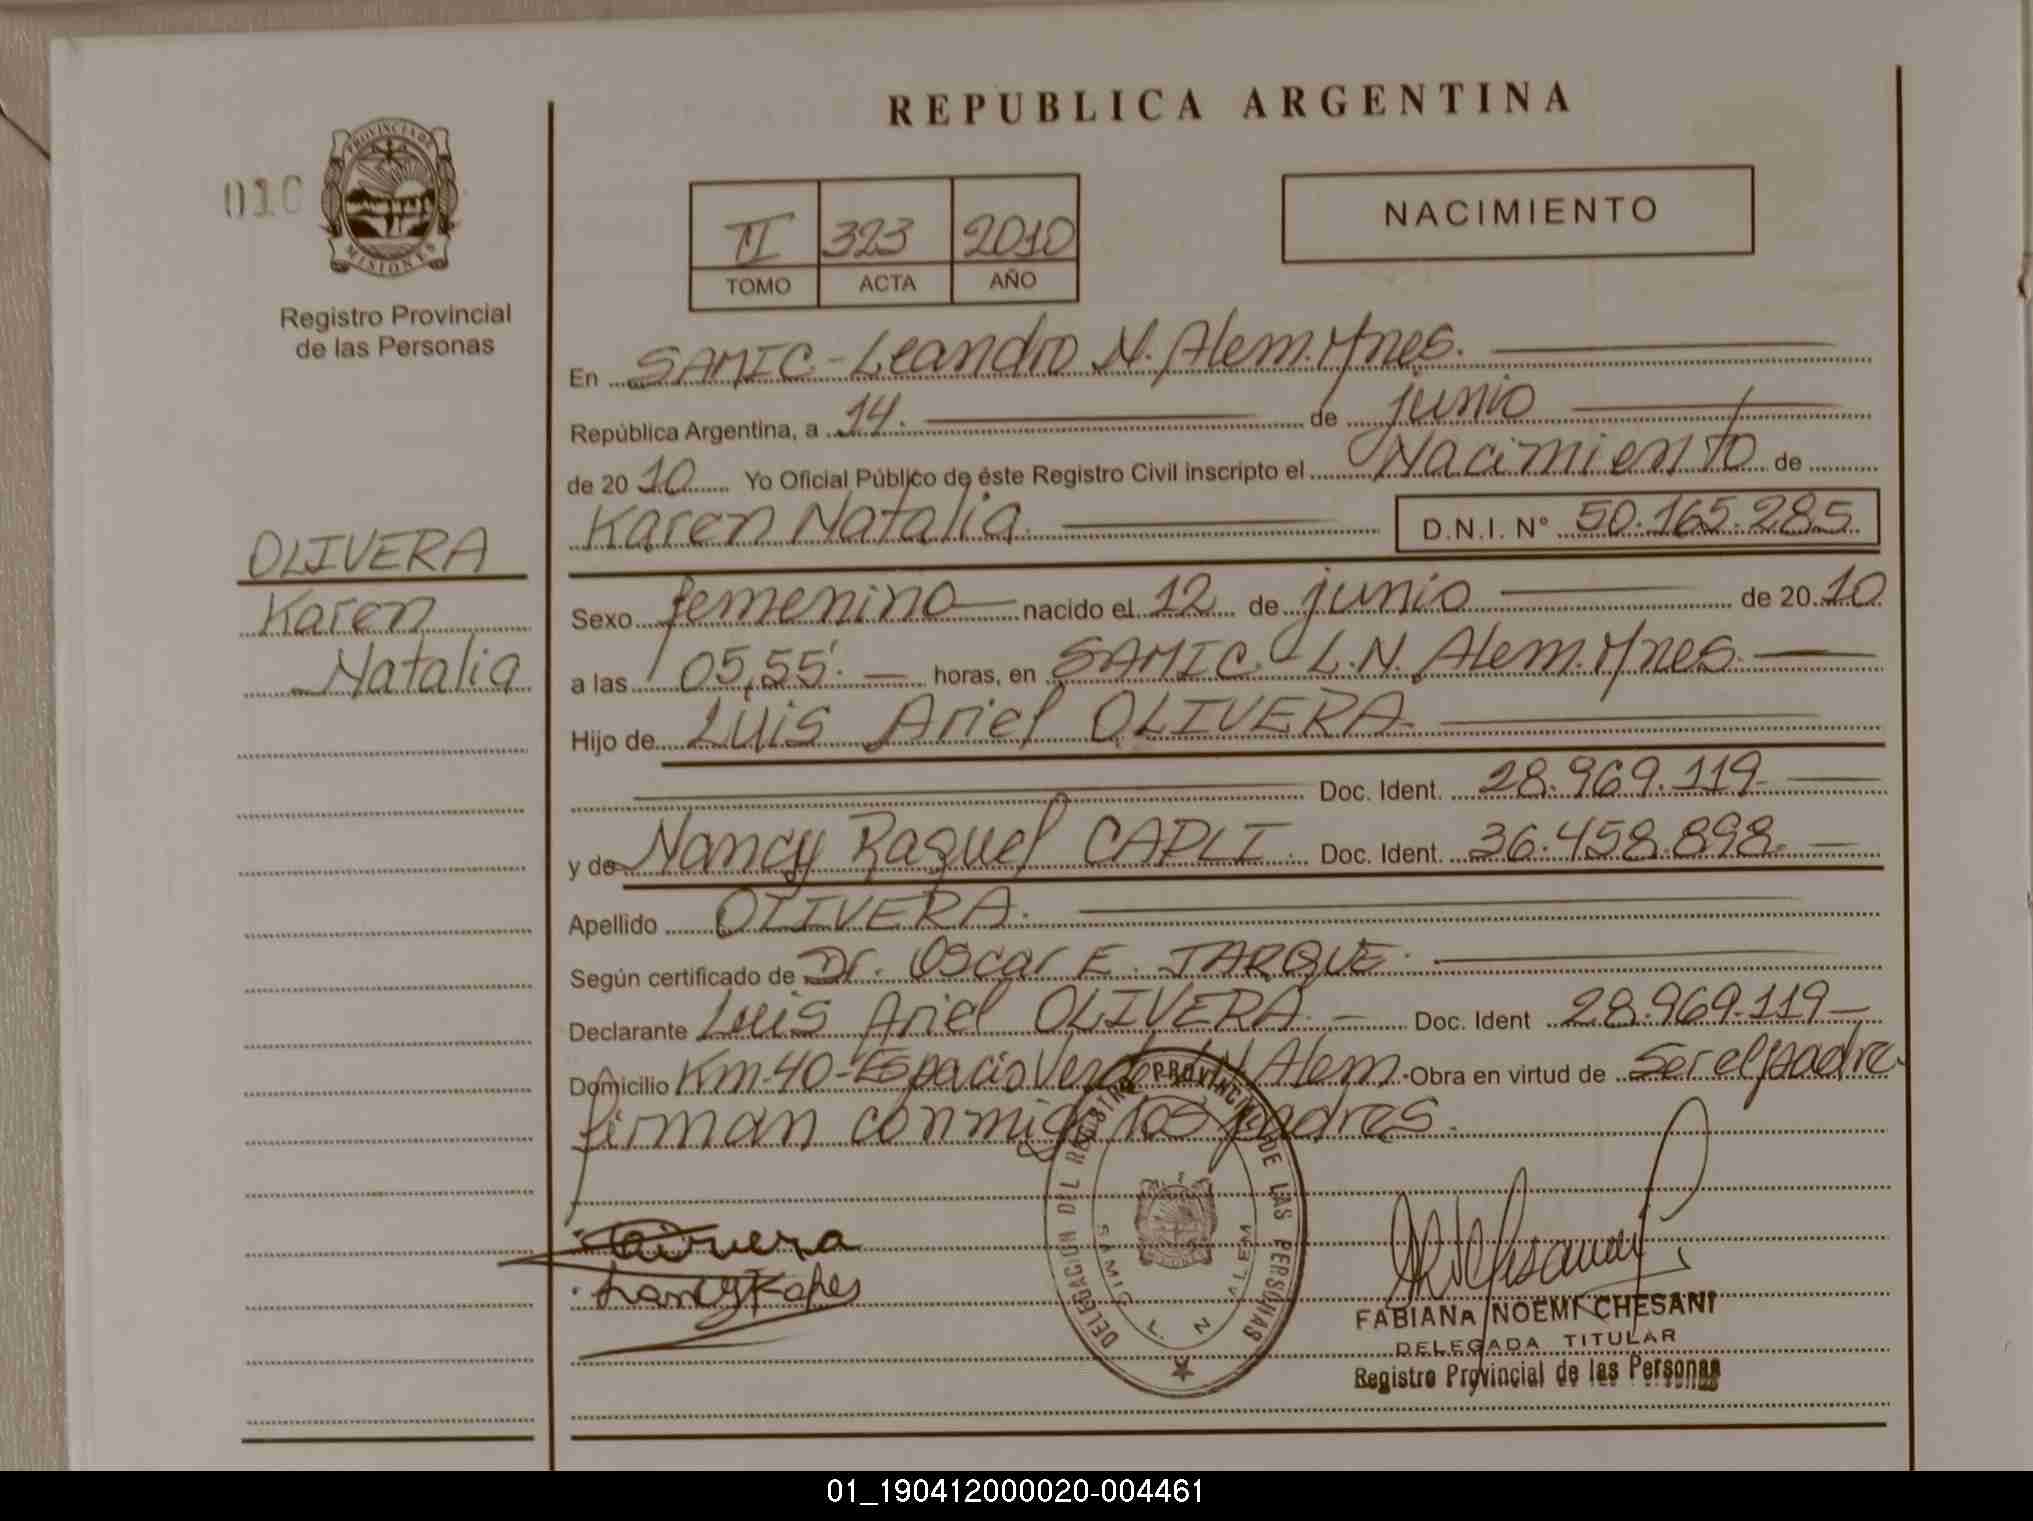 REPUBLICA ARGENTINA
010
PROVINCIA DE
MISIONES
Registro Provincial
de las Personas
II 323 2010
TOMO ACTA AÑO
NACIMIENTO
En SAMIC-Leandro N. Alem. Mnes.
República Argentina, a 14. de junio
de 2010 Yo Oficial Público de éste Registro Civil inscripto el Nacimiento de
Karen Natalia. D.N.I. N° 50.165.285
OLIVERA
Karen
Natalia
Sexo femenino nacido el 12 de junio de 2010
a las 05,55'. horas, en SAMIC.-L.N. Alem. Mnes.
Hijo de Luis Ariel OLIVERA
Doc. Ident. 28.969.119
y de Nancy Raquel Doc. Ident. 36.458.898
Apellido OLIVERA.
Según certificado de Dr. Oscar E. JARQUE.
Declarante Luis Ariel OLIVERA. Doc. Ident 28.969.119
Domicilio Km-40-Espacio Verde Alem. Obra en virtud de ser el padre
firman conmigo los padres.
DELEGACION DEL REGISTRO PROVINCIAL DE LAS PERSONAS
SAMIC L. N. ALEM
FABIANA NOEMI CHESANI
DELEGADA TITULAR
Registro Provincial de las Personas
01_190412000020-004461